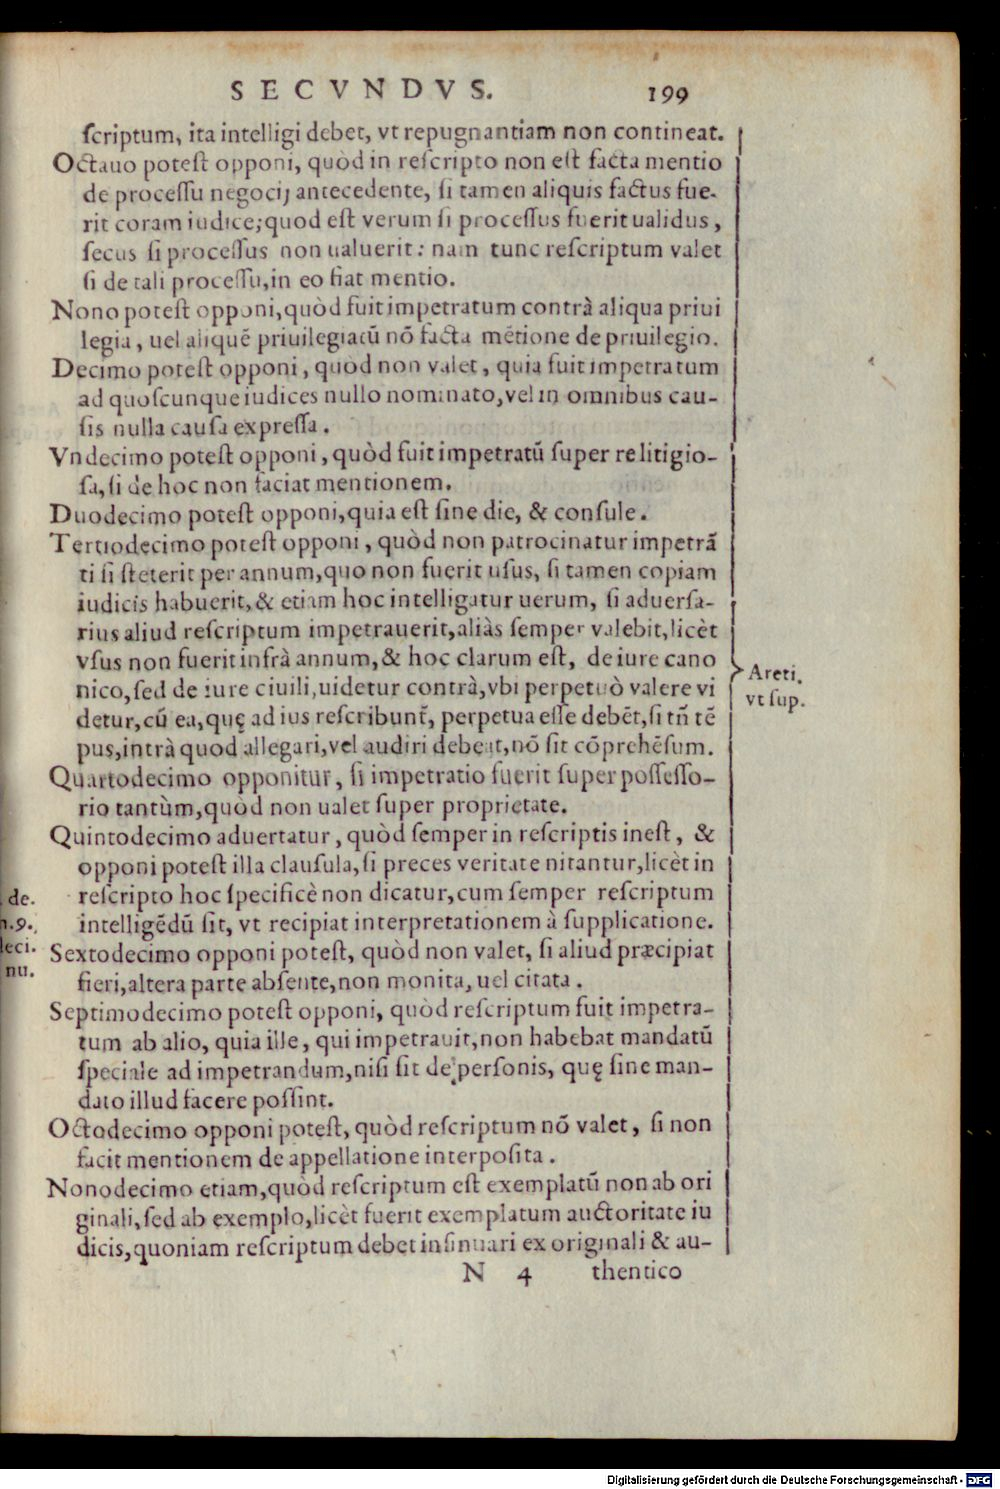 SECVNDVS. 199
ſcriptum, ita intelligi debet, vt repugnantiam non contineat.
Octauo poteſt opponi, quòd in reſcripto non eſt facta mentio
de proceſſu negocij antecedente, ſi tamen aliquis factus fue-
rit coram iudice; quod eſt verum ſi proceſſus fuerit ualidus,
ſecus ſi proceſſus non ualuerit: nam tunc reſcriptum valet
ſi de tali proceſſu, in eo fiat mentio.
Nono poteſt opponi, quòd fuit impetratum contrà aliqua priui
legia, uel aliquē priuilegiatū nō facta mētione de priuilegio.
Decimo poteſt opponi, quòd non valet, quia fuit impetratum
ad quoſcunque iudices nullo nominato, vel in omnibus cau-
ſis nulla cauſa expreſſa.
Vndecimo poteſt opponi, quòd fuit impetratū ſuper re litigio-
ſa, ſi de hoc non faciat mentionem.
Duodecimo poteſt opponi, quia eſt ſine die, & conſule.
Tertiodecimo poteſt opponi, quòd non patrocinatur impetrā
ti ſi ſteterit per annum, quo non fuerit uſus, ſi tamen copiam
iudicis habuerit, & etiam hoc intelligatur uerum, ſi aduerſa-
rius aliud reſcriptum impetrauerit, aliàs ſemper valebit, licèt
vſus non fuerit infrà annum, & hoc clarum eſt, de iure cano
nico, ſed de iure ciuili, uidetur contrà, vbi perpetuò valere vi
detur, cū ea, quę ad ius reſcribunt̄, perpetua eſſe debēt, ſi tn̄ tē
pus, intrà quod allegari, vel audiri debeat, nō ſit cōprehēſum.
Quartodecimo opponitur, ſi impetratio fuerit ſuper poſſeſſo-
rio tantùm, quòd non ualet ſuper proprietate.
Quintodecimo aduertatur, quòd ſemper in reſcriptis ineſt, &
opponi poteſt illa clauſula, ſi preces veritate nitantur, licèt in
reſcripto hoc ſpecificè non dicatur, cum ſemper reſcriptum
intelligēdū ſit, vt recipiat interpretationem à ſupplicatione.
Sextodecimo opponi poteſt, quòd non valet, ſi aliud præcipiat
fieri, altera parte abſente, non monita, uel citata.
Septimodecimo poteſt opponi, quòd reſcriptum fuit impetra-
tum ab alio, quia ille, qui impetrauit, non habebat mandatū
ſpeciale ad impetrandum, niſi ſit de perſonis, quę ſine man-
dato illud facere poſſint.
Octodecimo opponi poteſt, quòd reſcriptum nō valet, ſi non
facit mentionem de appellatione interpoſita.
Nonodecimo etiam, quòd reſcriptum eſt exemplatū non ab ori
ginali, ſed ab exemplo, licèt fuerit exemplatum auctoritate iu
dicis, quoniam reſcriptum debet inſinuari ex originali & au-
N 4 thentico
Areti.
vt ſup.
de.
.9.
leci.
nu.
Digitalisierung gefördert durch die Deutsche Forschungsgemeinschaft - DFG